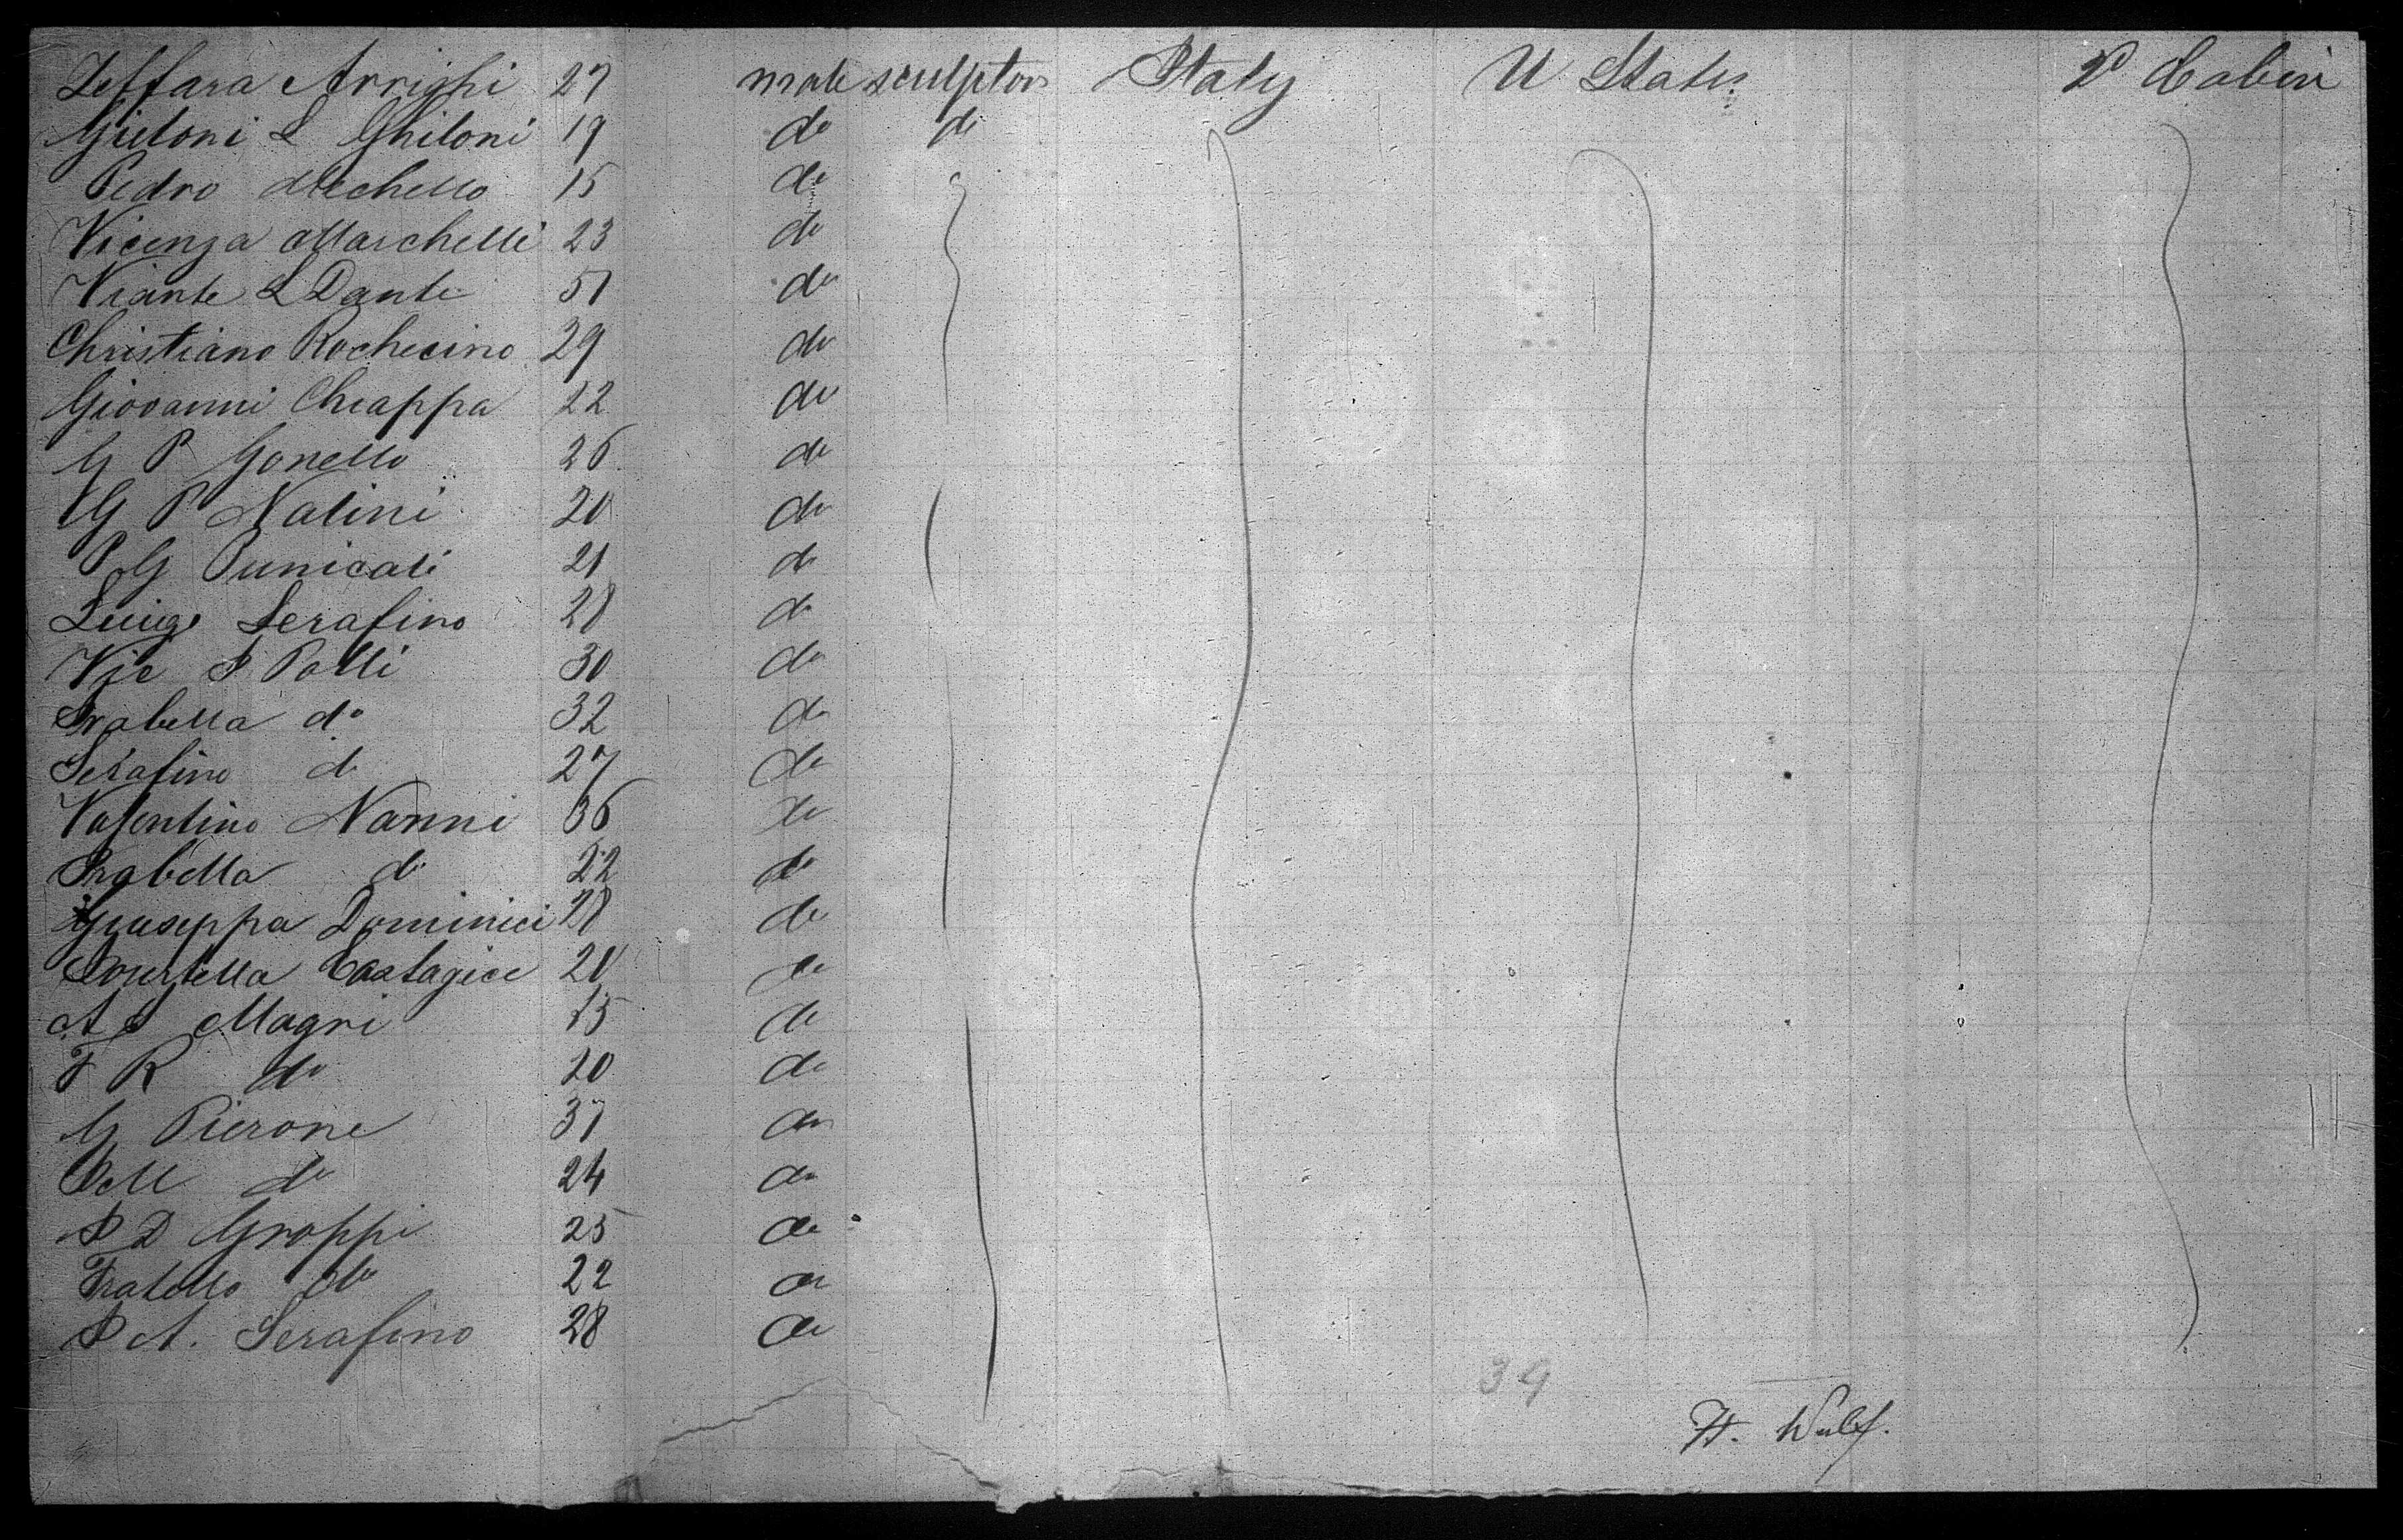 Zeffara Arrighi 27 male sculptors Italy U States 2d Cabin
Gieloni L Ghiloni 19 do do
Pedro Mechello 15 do
Vicenza Marchelli 23 do
Viante L Dante 51 do
Christiano Rochecino 29 do
Giovanni Cheappa 22 do
G P Gonello 26 do
G P Natini 20 do
P G Punicati 21 do
Luige Serafino 28 do
Vic P Polli 30 do
Isabella do 32 do
Serafino do 27 do
Valentino Nanni 36 do
Isabella do 22 do
Giuseppa Dominici 28 do
Castagice 20 do
A S Magri 15 do
F R do 20 do
G Pierone 37 do
P M do 24 do
P D Groppi 25 do
Fratello do 22 do
P A. Serafino 28 do
39
H. Wulf.